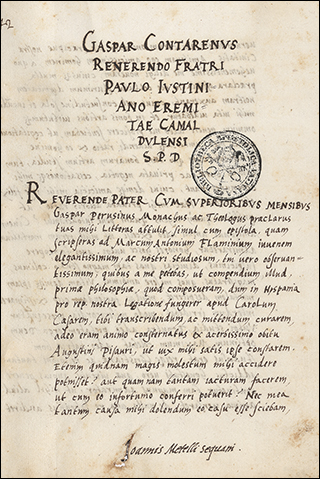 GASPAR CONTARENVS
REVERENDO FRATRI
PAVLO IVSTINI
ANO EREMI
TAE CAMAL
DVLENSI
S. P. D
REVERENDE PATER CVM SVPERIORIBVS MENSIBVS
Gaspar Perusinus Monachus ac Theologus praeclarus
tuas mihi litteras attulit simul cum epistola, quam
scripseras ad Marcum Antonium Flaminium iuvenem
elegantissimum, ac nostri studiosum, tui vero observan-
tissimum; quibus a me petebas, ut compendium illud
primae philosophiae, quod composueram, dum in Hispania
pro rep. nostra Legatione fungerer apud Carolum
Caesarem, tibi transcribendum, ac mittendum curarem,
adeo eram animo consternatus ex acerbissimo obitu
Augustini Pisauri, ut vix mihi satis ipse constarem.
Etenim quidnam magis molestum mihi accidere
potuisset? aut quamnam tantam iacturam facerem,
ut cum eo infortunio conferri potuerit? Nec mea
tantum causa mihi dolendum eo casu esse sciebam,
Ioannis Metelli sequani.